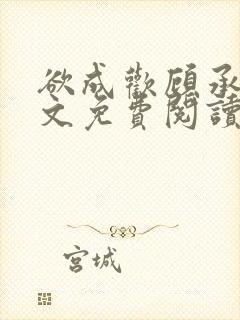 欲成歡顧承
文免費閱讀
宮城